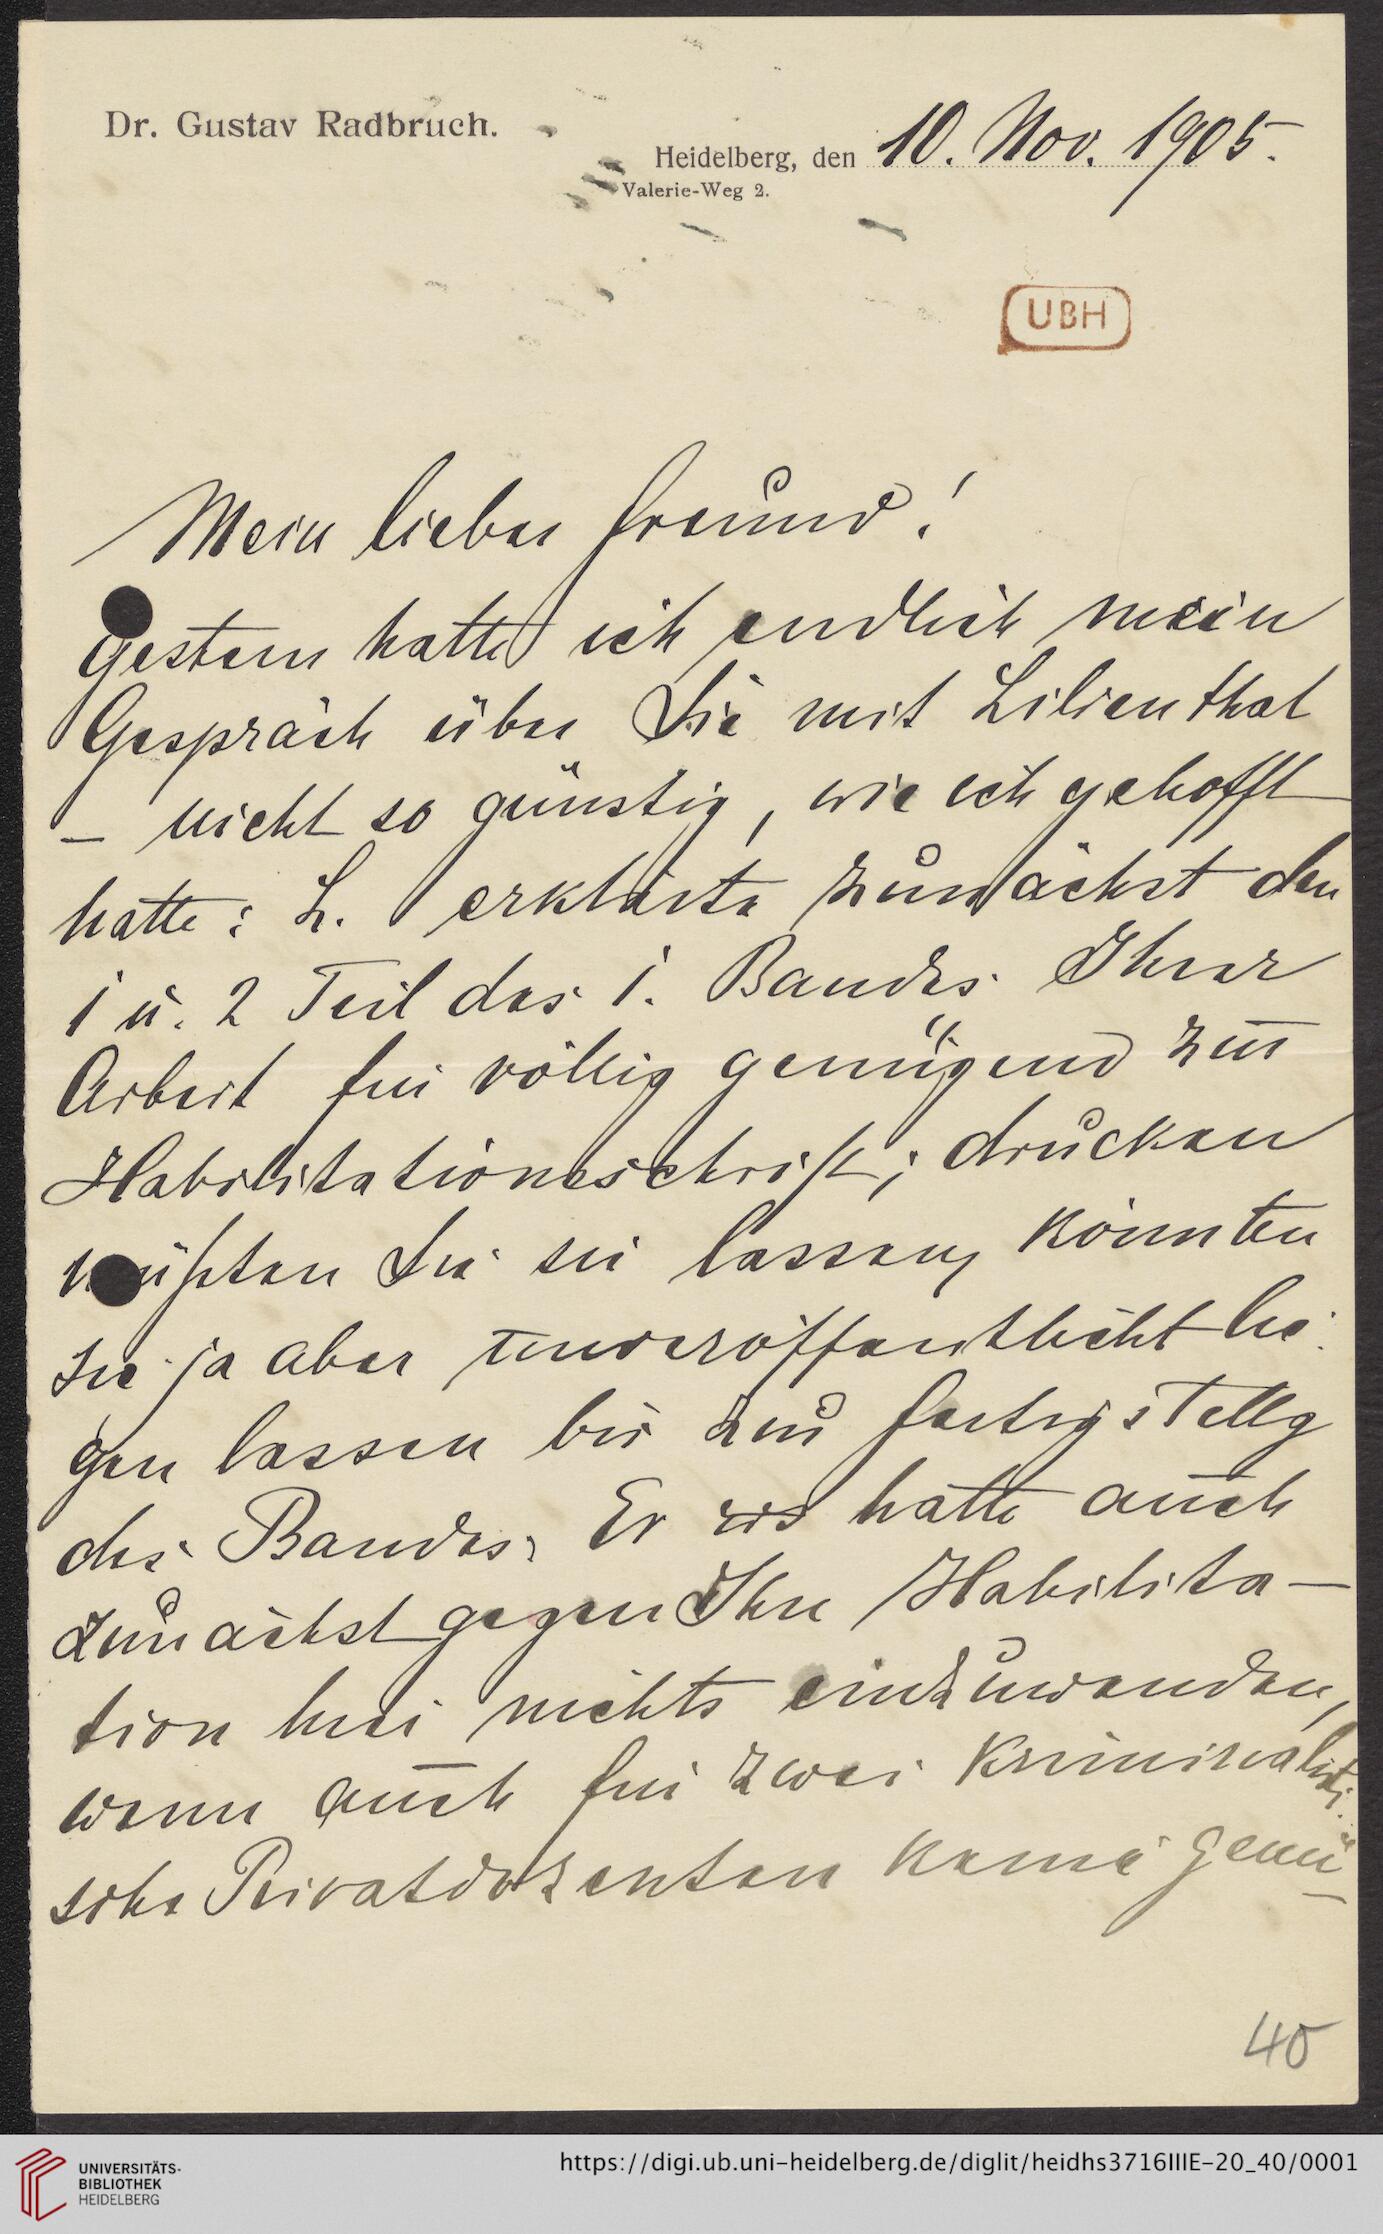 Dr. Gustav Radbruch.
Heidelberg, den 10. Nov. 1905.
Valerie-Weg 2.
UBH
Mein lieber Freund!
Gestern hatte ich endlich mein
Gespräch über Sie mit Lilienthal
– nicht so günstig, wie ich gehofft
hatte: L. erklärte zunächst den
1 u. 2 Teil des 1. Bandes Ihrer
Arbeit für völlig genügend zur
Habilitationsschrift; drucken
müßten Sie sie lassen, könnten
sie ja aber unveröffentlicht lie
gen lassen bis zur Fertigstellg
des Bandes. Er hatte auch
zunächst gegen Ihre Habilita-
tion hier nichts einzuwenden,
wenn auch für zwei kriminalisti-
sche Privatdozenten kaum genü-
40
UNIVERSITÄTS-
BIBLIOTHEK
HEIDELBERG
https://digi.ub.uni-heidelberg.de/diglit/heidhs3716IIIE-20_40/0001